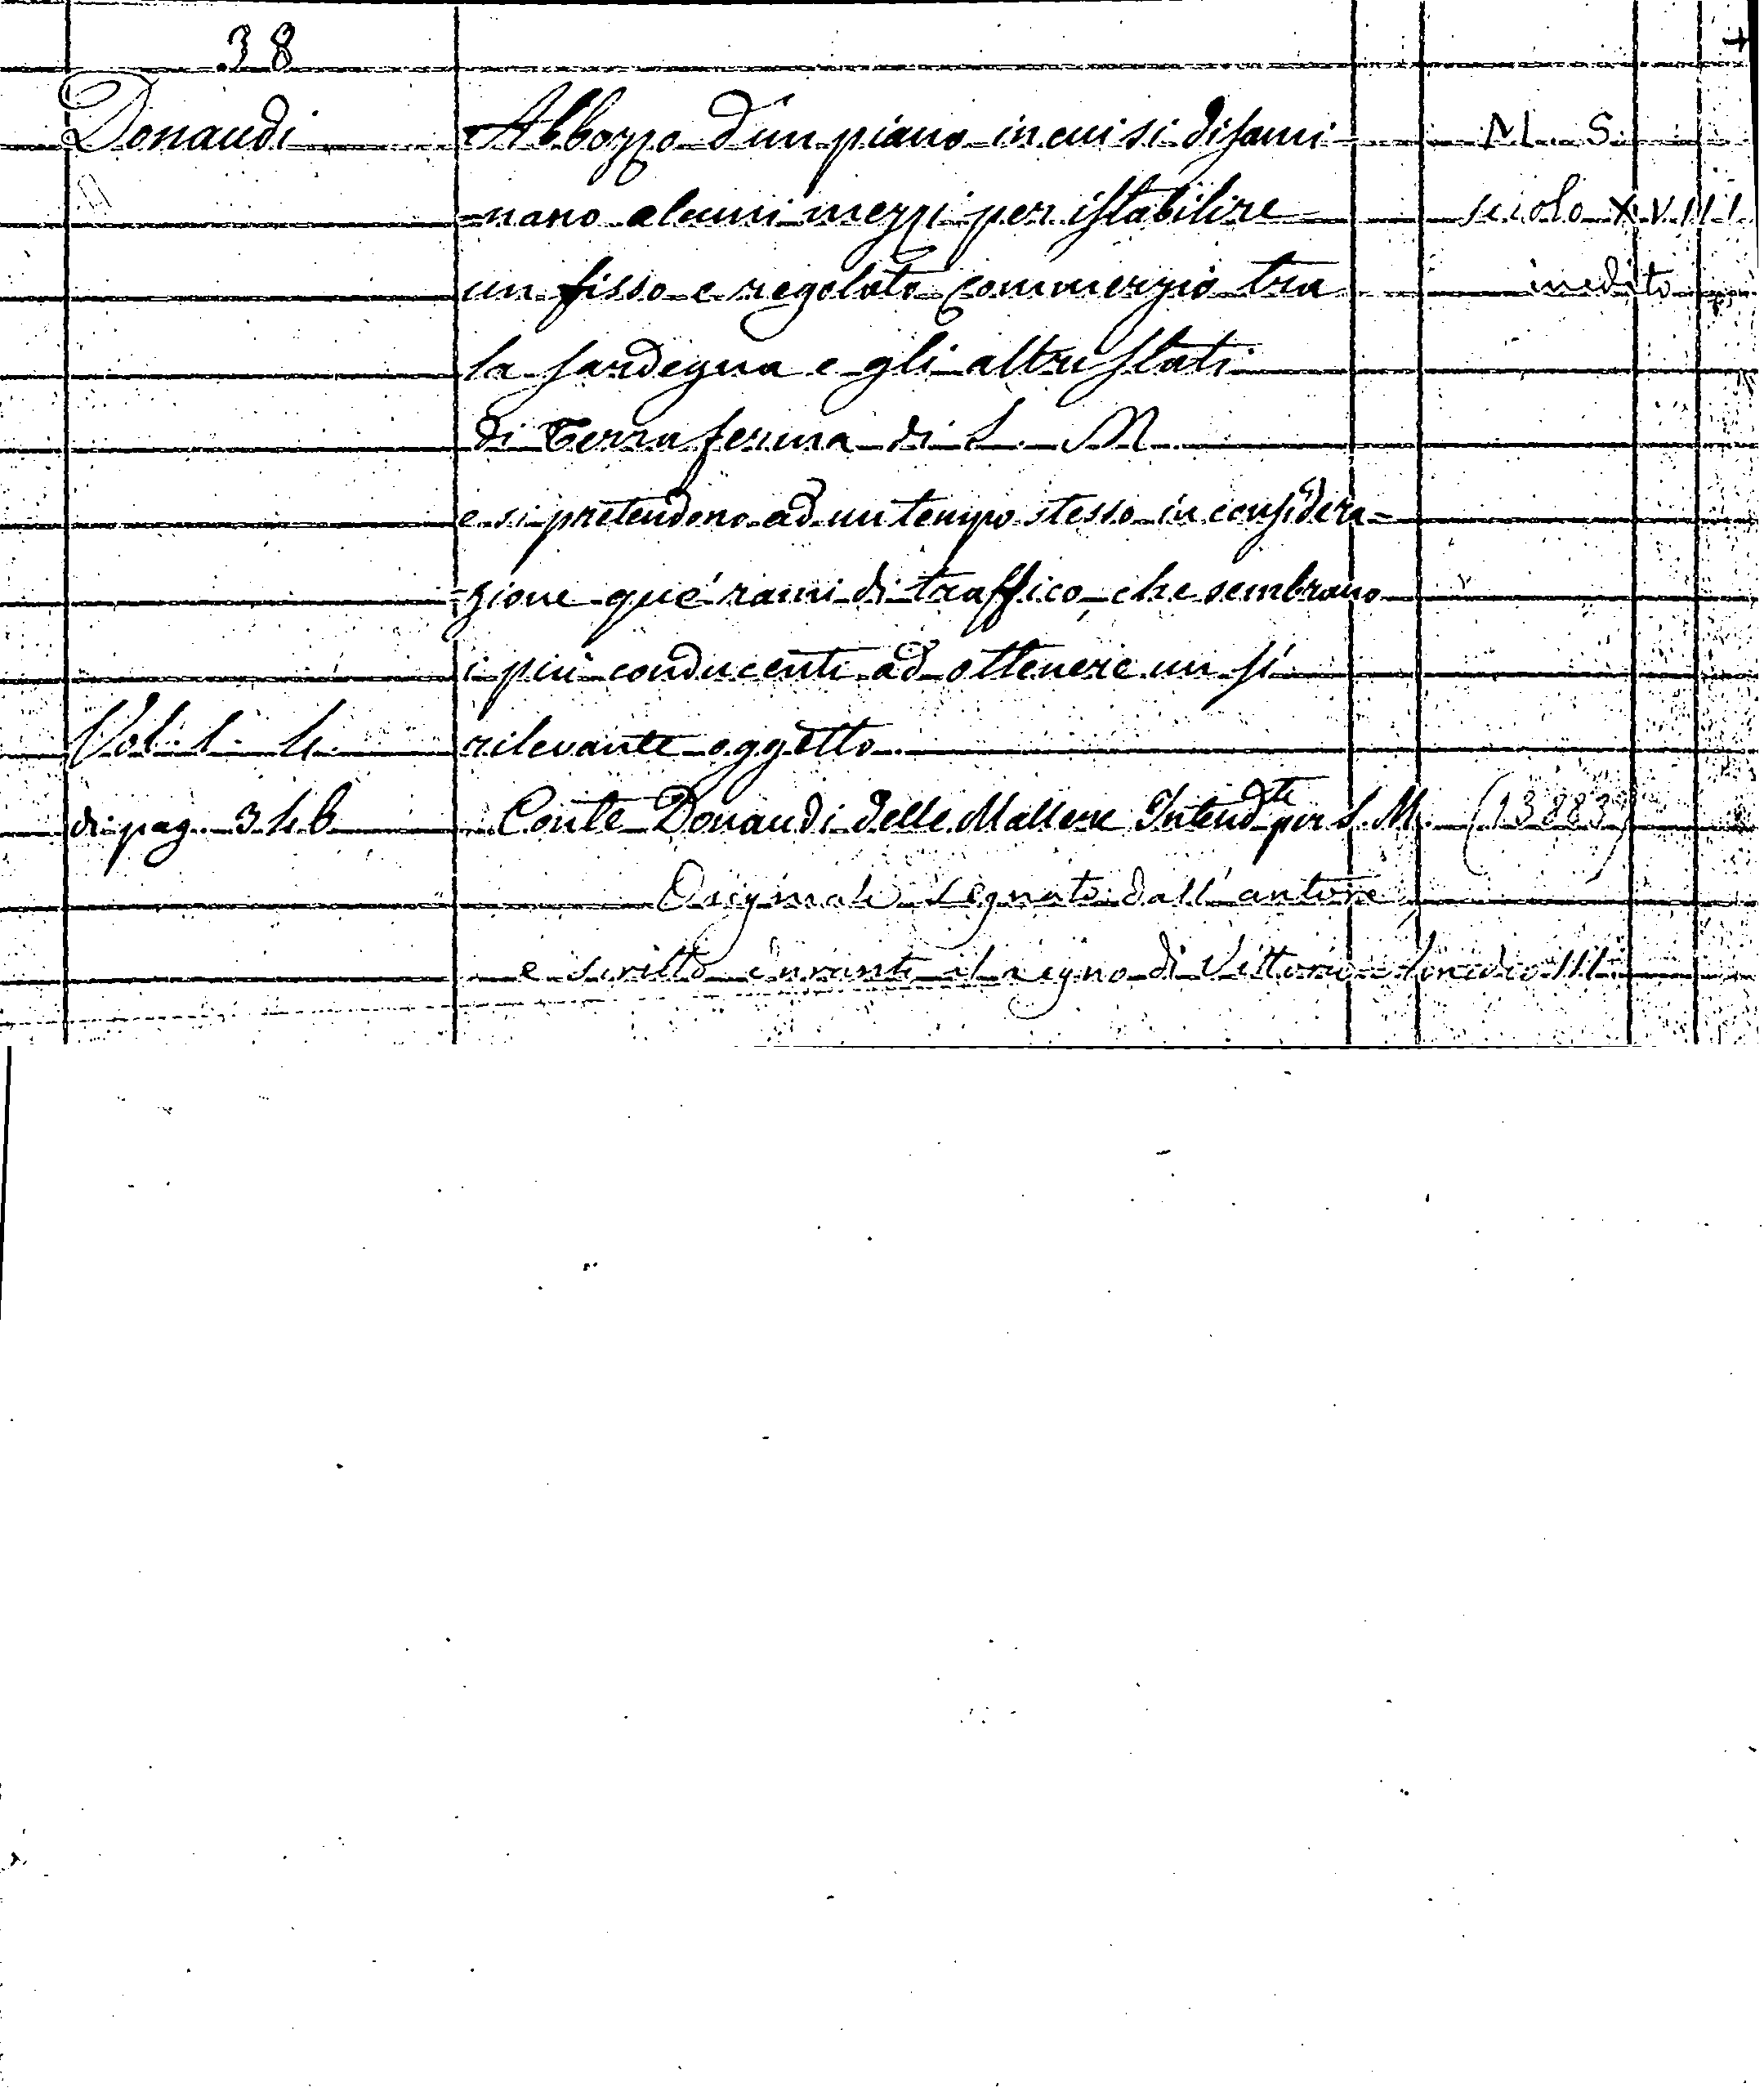 38
Donaudi Abbozzo d'un piano in cui si disami- M. S.
=nano alcuni mezzi per istabilire secolo XVIII
un fisso e regolato commerzio tra inedito
la Sardegna e gli altri Stati
di Terra ferma di S. M.
e si pretendono ad un tempo stesso in considera=
=zione que' rami di traffico, che sembrano
i più conducenti ad ottenere un sì
Vol. 1. 4. rilevante oggetto.
di pag. 346 Conte Donaudi delle Mallere Intend.te per S. M. (13883)
Originale segnato dall'autore
e scritto durante il regno di Vittorio Amedeo III.